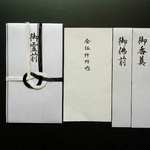 御香奠
御佛前
金伍阡円也
御霊前